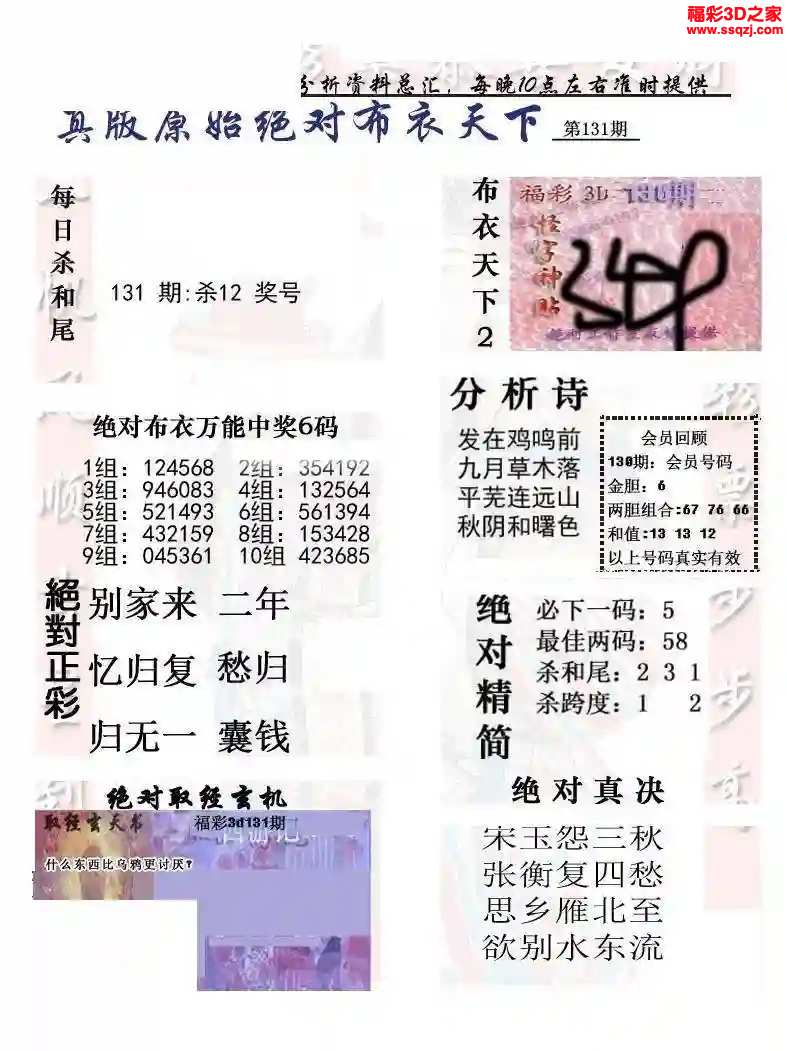 福彩3D之家
www.ssqzj.com
分析资料总汇，每晚10点左右准时提供
真版原始绝对布衣天下 第131期
每日杀和尾
131 期:杀12 奖号
布衣天下2
福彩 3D 131期
怪字神贴
绝对布衣万能中奖6码
1组: 124568 2组: 354192
3组: 946083 4组: 132564
5组: 521493 6组: 561394
7组: 432159 8组: 153428
9组: 045361 10组 423685
絕對正彩
别家来 二年
忆归复 愁归
归无一 囊钱
分析诗
发在鸡鸣前
九月草木落
平芜连远山
秋阴和曙色
会员回顾
130期: 会员号码
金胆: 6
两胆组合:67 76 66
和值:13 13 12
以上号码真实有效
绝对精简
必下一码: 5
最佳两码: 58
杀和尾: 2 3 1
杀跨度: 1 2
绝对取经玄机
取经玄天书 福彩3d131期
什么东西比乌鸦更讨厌?
绝对真决
宋玉怨三秋
张衡复四愁
思乡雁北至
欲别水东流